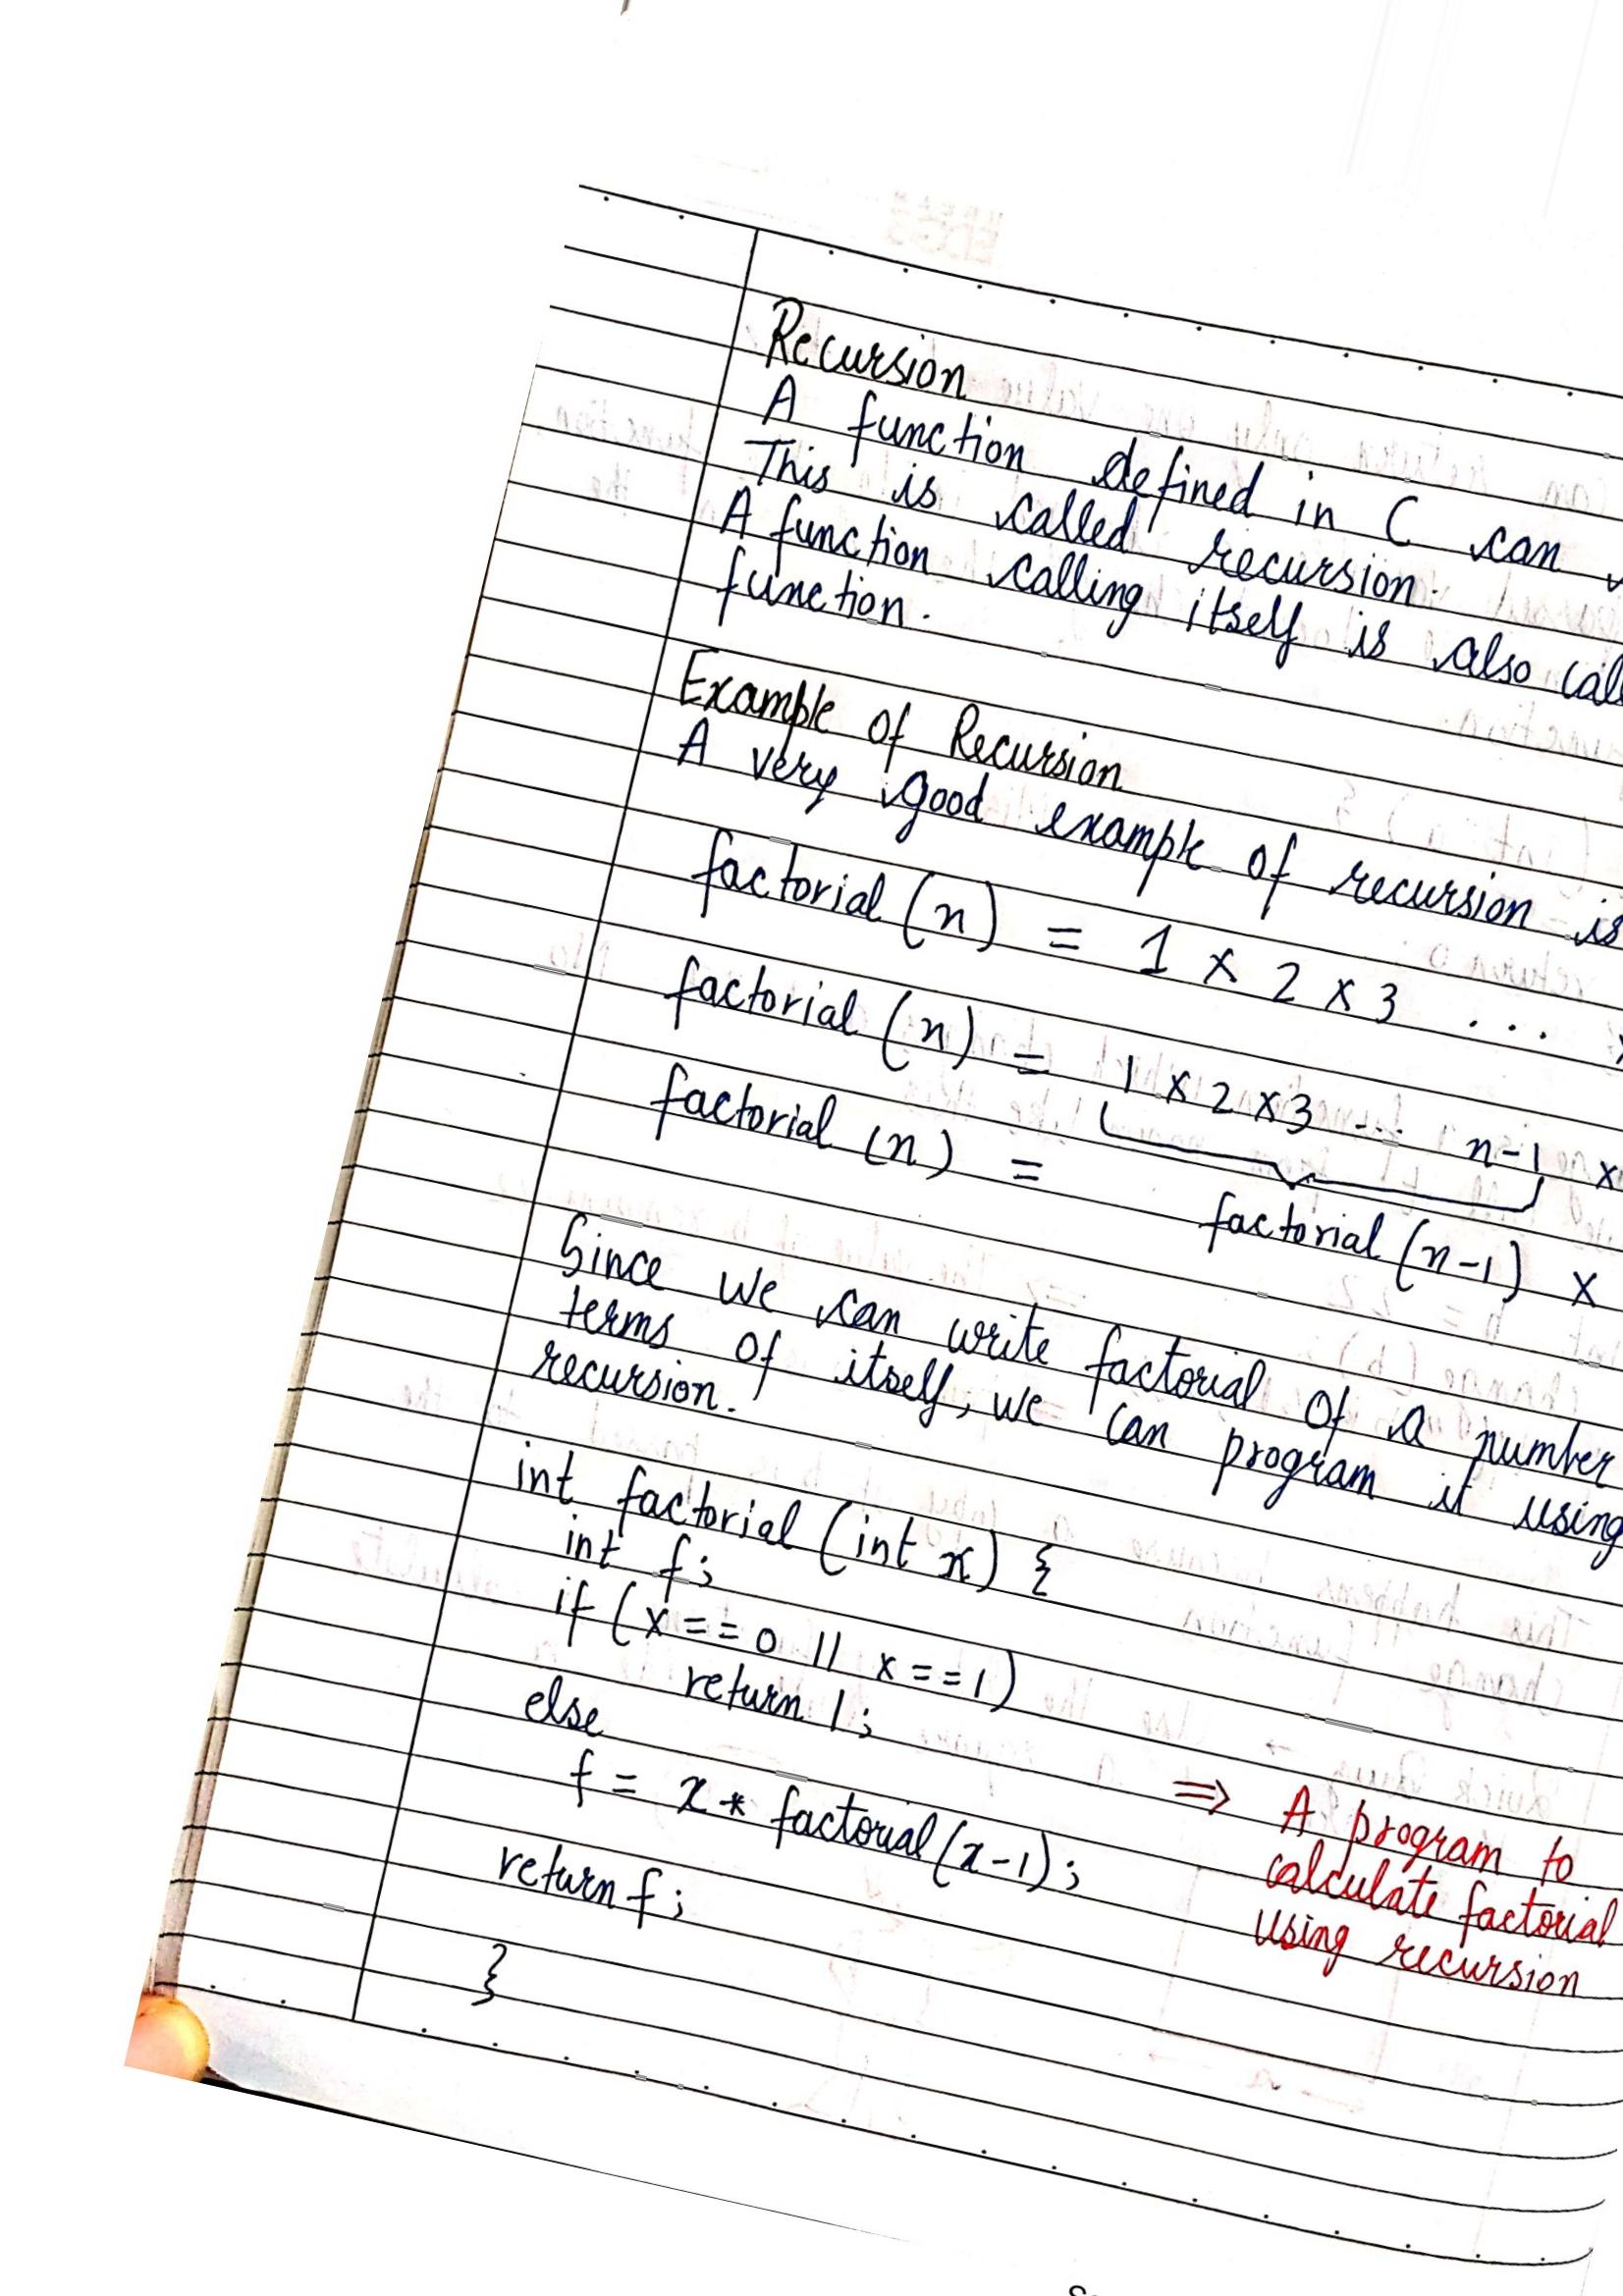 Recursion
A function defined in C can
This is called recursion.
A function calling itself is also
function.
Example of Recursion
A very good example of recursion is
factorial (n) = 1 x 2 x 3 ...
factorial (n) = 1 x 2 x 3 ... n-1 x
factorial (n) = factorial (n-1) x
Since we can write factorial of a number
terms of itself, we can program it using
recursion.
int factorial (int x) {
int f;
if (x==0 || x==1)
return 1;
else
f = x * factorial (x-1);
return f;
}
⇒ A program to
calculate factorial
using recursion